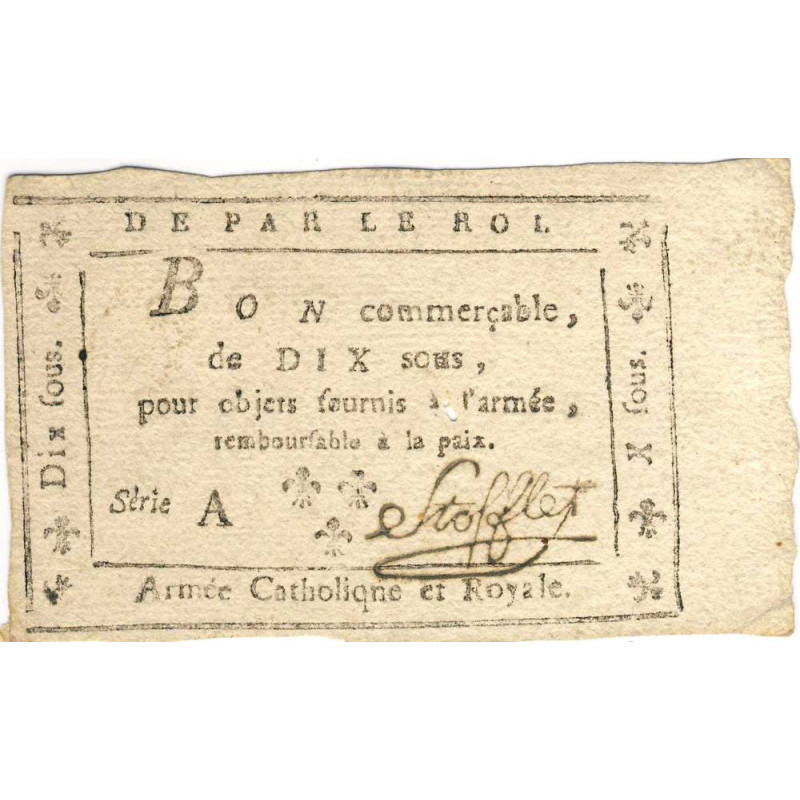 DE PAR LE ROI.
BON commerçable,
de DIX sous,
pour objets fournis à l'armée,
rembourſable à la paix.
Série A
Stofflet
Armée Catholique et Royale.
Dix ſous.
X ſous.